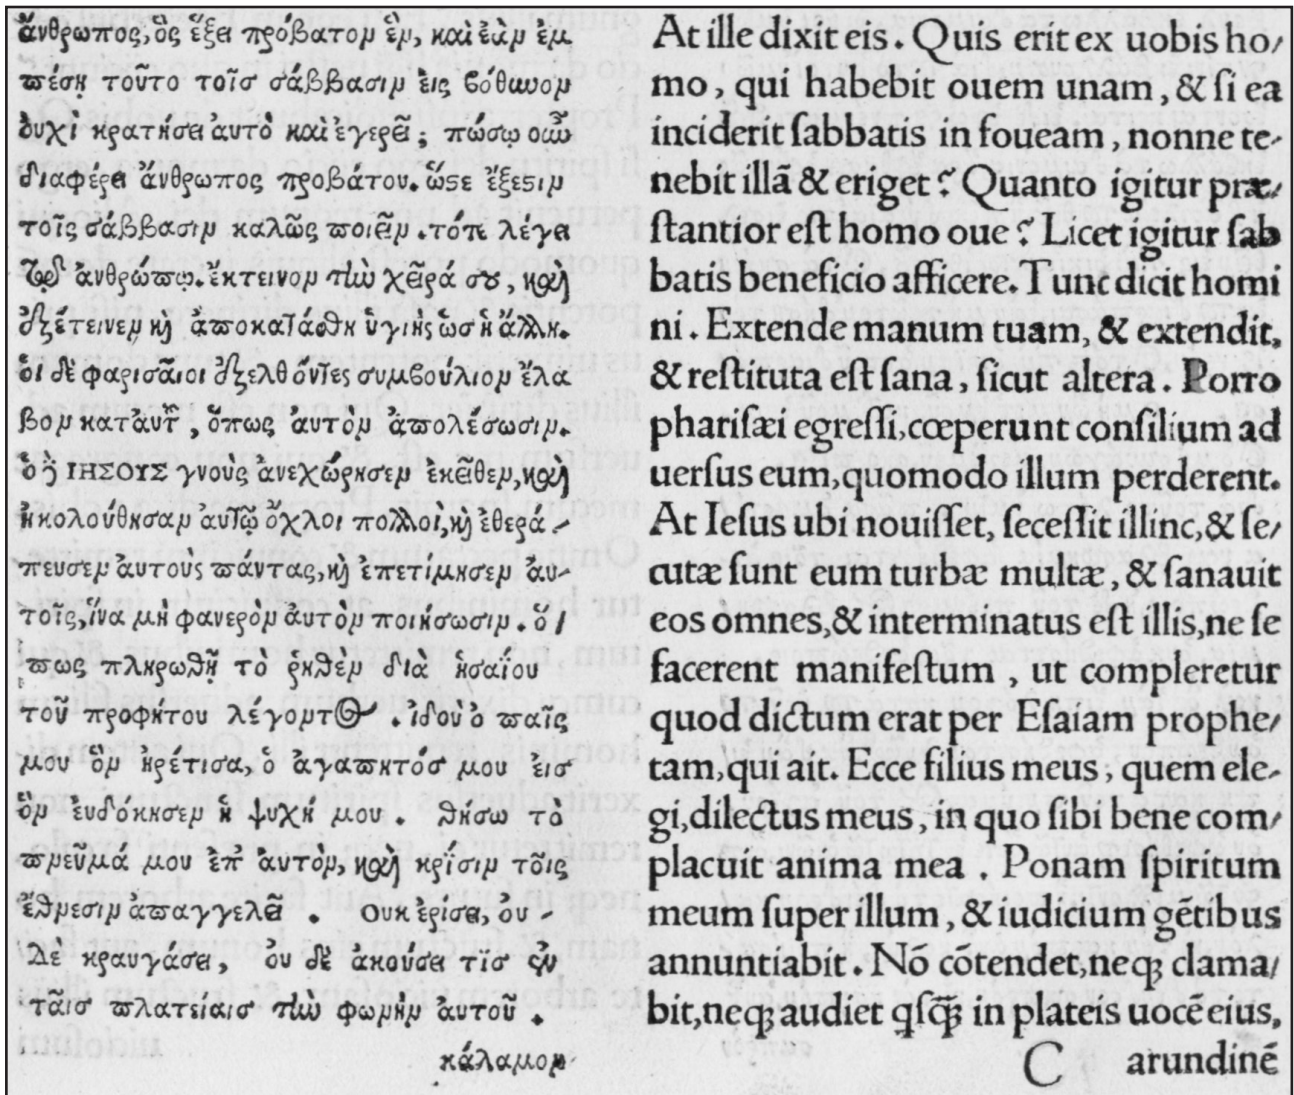 ἄνθρωπος, ὃς ἕξει πρόβατον ἓν, καὶ ἐὰν ἐμ
πέσῃ τοῦτο τοῖσ σάββασιν ἐις βόθυνον
ὀυχὶ κρατήσει ἀυτὸ καὶ ἐγερεῖ; πόσῳ οὖν
διαφέρει ἄνθρωπος προβάτου. ὥστε ἔξεστιν
τοῖς σάββασιν καλῶς ποιεῖν. τότε λέγει
τῷ ἀνθρώπῳ. ἔκτεινον τὴν χεῖρά σου, καὶ
ἐξέτεινεν καὶ ἀποκατάσθη ὑγιὴς ὡσ ἡ ἄλλη.
ὁι δὲ φαρισᾶιοι ἐξελθόντες συμβούλιον ἔλα
βον κατ' ἀυτοῦ, ὅπως ἀυτὸν ἀπολέσωσιν.
ὁ δὲ ΙΗΣΟΥΣ γνοὺς ἀνεχώρησεν ἐκεῖθεν, καὶ
ἠκολούθησαν ἀυτῷ ὄχλοι πολλοι, καὶ ἐθερά-
πευσεν ἀυτοὺς πάντας, καὶ ἐπετίμησεν ἀυ-
τοῖς, ἵνα μὴ φανερὸν ἀυτὸν ποιήσωσιν. ὅ/
πως πληρωθῇ τὸ ρηθὲν δια ἡσαΐου
τοῦ προφήτου λέγοντος. ἰδοὺ ὁ παῖς
μου ὃν ἡρέτισα, ὁ ἀγαπητόσ μου ἐισ
ὃν ἐυδόκησεν ἡ ψυχή μου. θήσω τὸ
πνεῦμά μου ἐπ' ἀυτὸν, καὶ κρίσιν τοῖς
ἔθνεσιν ἀπαγγελεῖ. Ουκ ἐρίσει, ου-
δε κραυγάσει, ὀυ δὲ ἀκούσει τὶσ ἐν
ταῖσ πλατείαισ τὴν φωνὴν ἀυτοῦ.
κάλαμον
At ille dixit eis. Quis erit ex uobis ho/
mo, qui habebit ouem unam, & ſi ea
inciderit ſabbatis in foueam, nonne te-
nebit illā & eriget? Quanto igitur præ/
ſtantior eſt homo oue? Licet igitur ſab
batis beneficio afficere. Tunc dicit homi
ni. Extende manum tuam, & extendit,
& reſtituta eſt ſana, ſicut altera. Porro
phariſæi egreſſi, cœperunt conſilium ad
uerſus eum, quomodo illum perderent.
At Ieſus ubi nouiſſet, ſeceſſit illinc, & ſe/
cutæ ſunt eum turbæ multæ, & ſanauit
eos omnes, & interminatus eſt illis, ne ſe
facerent manifeſtum, ut compleretur
quod dictum erat per Eſaiam prophe/
tam, qui ait. Ecce filius meus, quem ele-
gi, dilectus meus, in quo ſibi bene com/
placuit anima mea. Ponam ſpiritum
meum ſuper illum, & iudicium gētibus
annuntiabit. Nō cōtendet, neqꝫ clama/
bit, neqꝫ audiet qſꝗꝫ in plateis uocē eius,
C arundinē